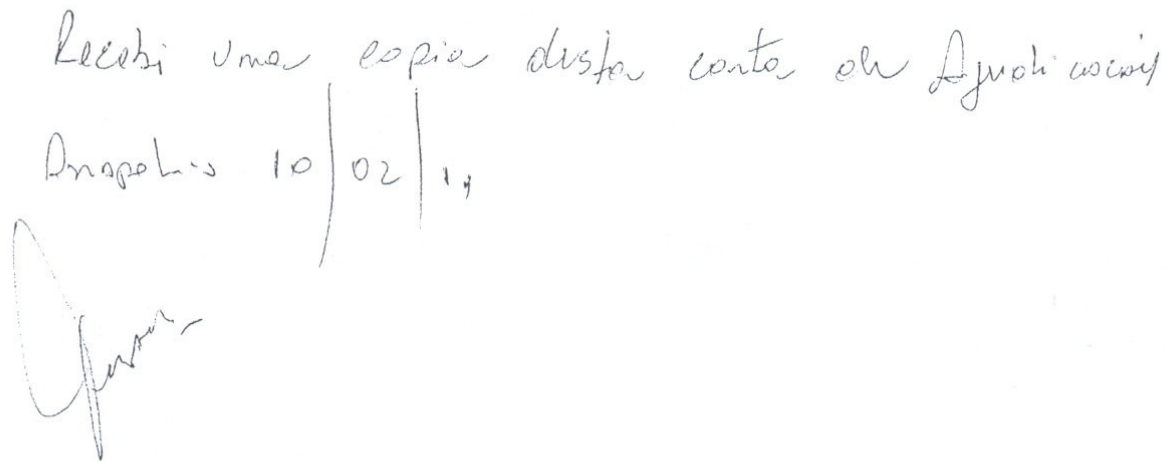 Recebi uma copia desta carta de Ajudicação
Anapolis 10/02/11